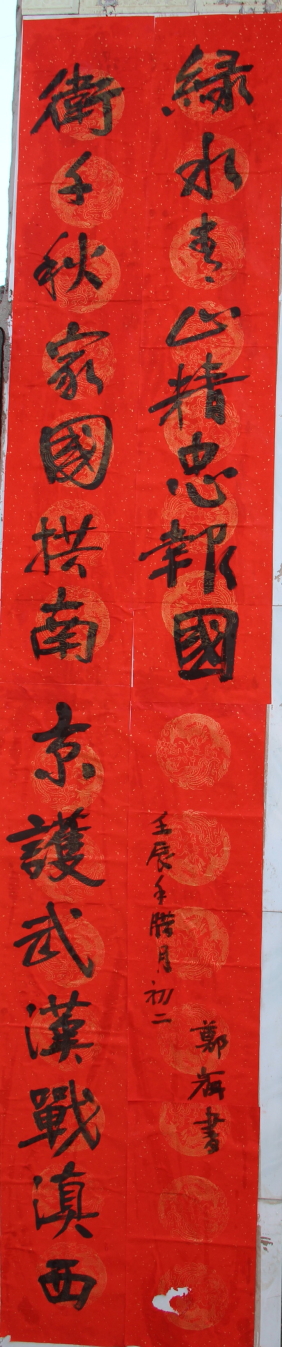 緑水青山精忠報國
衛千秋家國拱南京護武漢戰滇西
壬辰年腊月初二
鄭海書